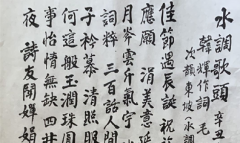 水調歌頭 辛丑
韓輝作詞 毛
次韻東坡《水調
佳節遇辰誕祝
應願 涓美意延
月岑雲斤氣宇
詞粹 三百話人間
子衿慕 清照服
何這般玉潤珠圓
事怡情無缺四
夜 詩友聞嬋娟